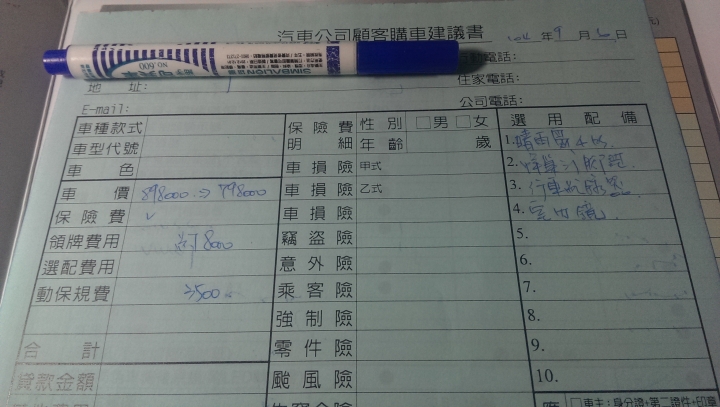 汽車公司顧客購車建議書
年9月 日
電話:
地 址: 住家電話:
E-mail: 公司電話:
車種款式 保險費 性別 □男 □女 選用配備
車型代號 明細 年齡 歲 1.晴雨窗4片
車色 車損險 甲式 2.
車價 898000 → 798000 車損險 乙式 3.行車紀錄器
保險費 ✓ 車損險 4.室內鏡
領牌費用 約8000 竊盜險 5.
選配費用 意外險 6.
動保規費 3500 乘客險 7.
強制險 8.
合計 零件險 9.
貸款金額 颱風險 10.
□車主:身分證+第二證件+印章
SIMBALION
NO.600